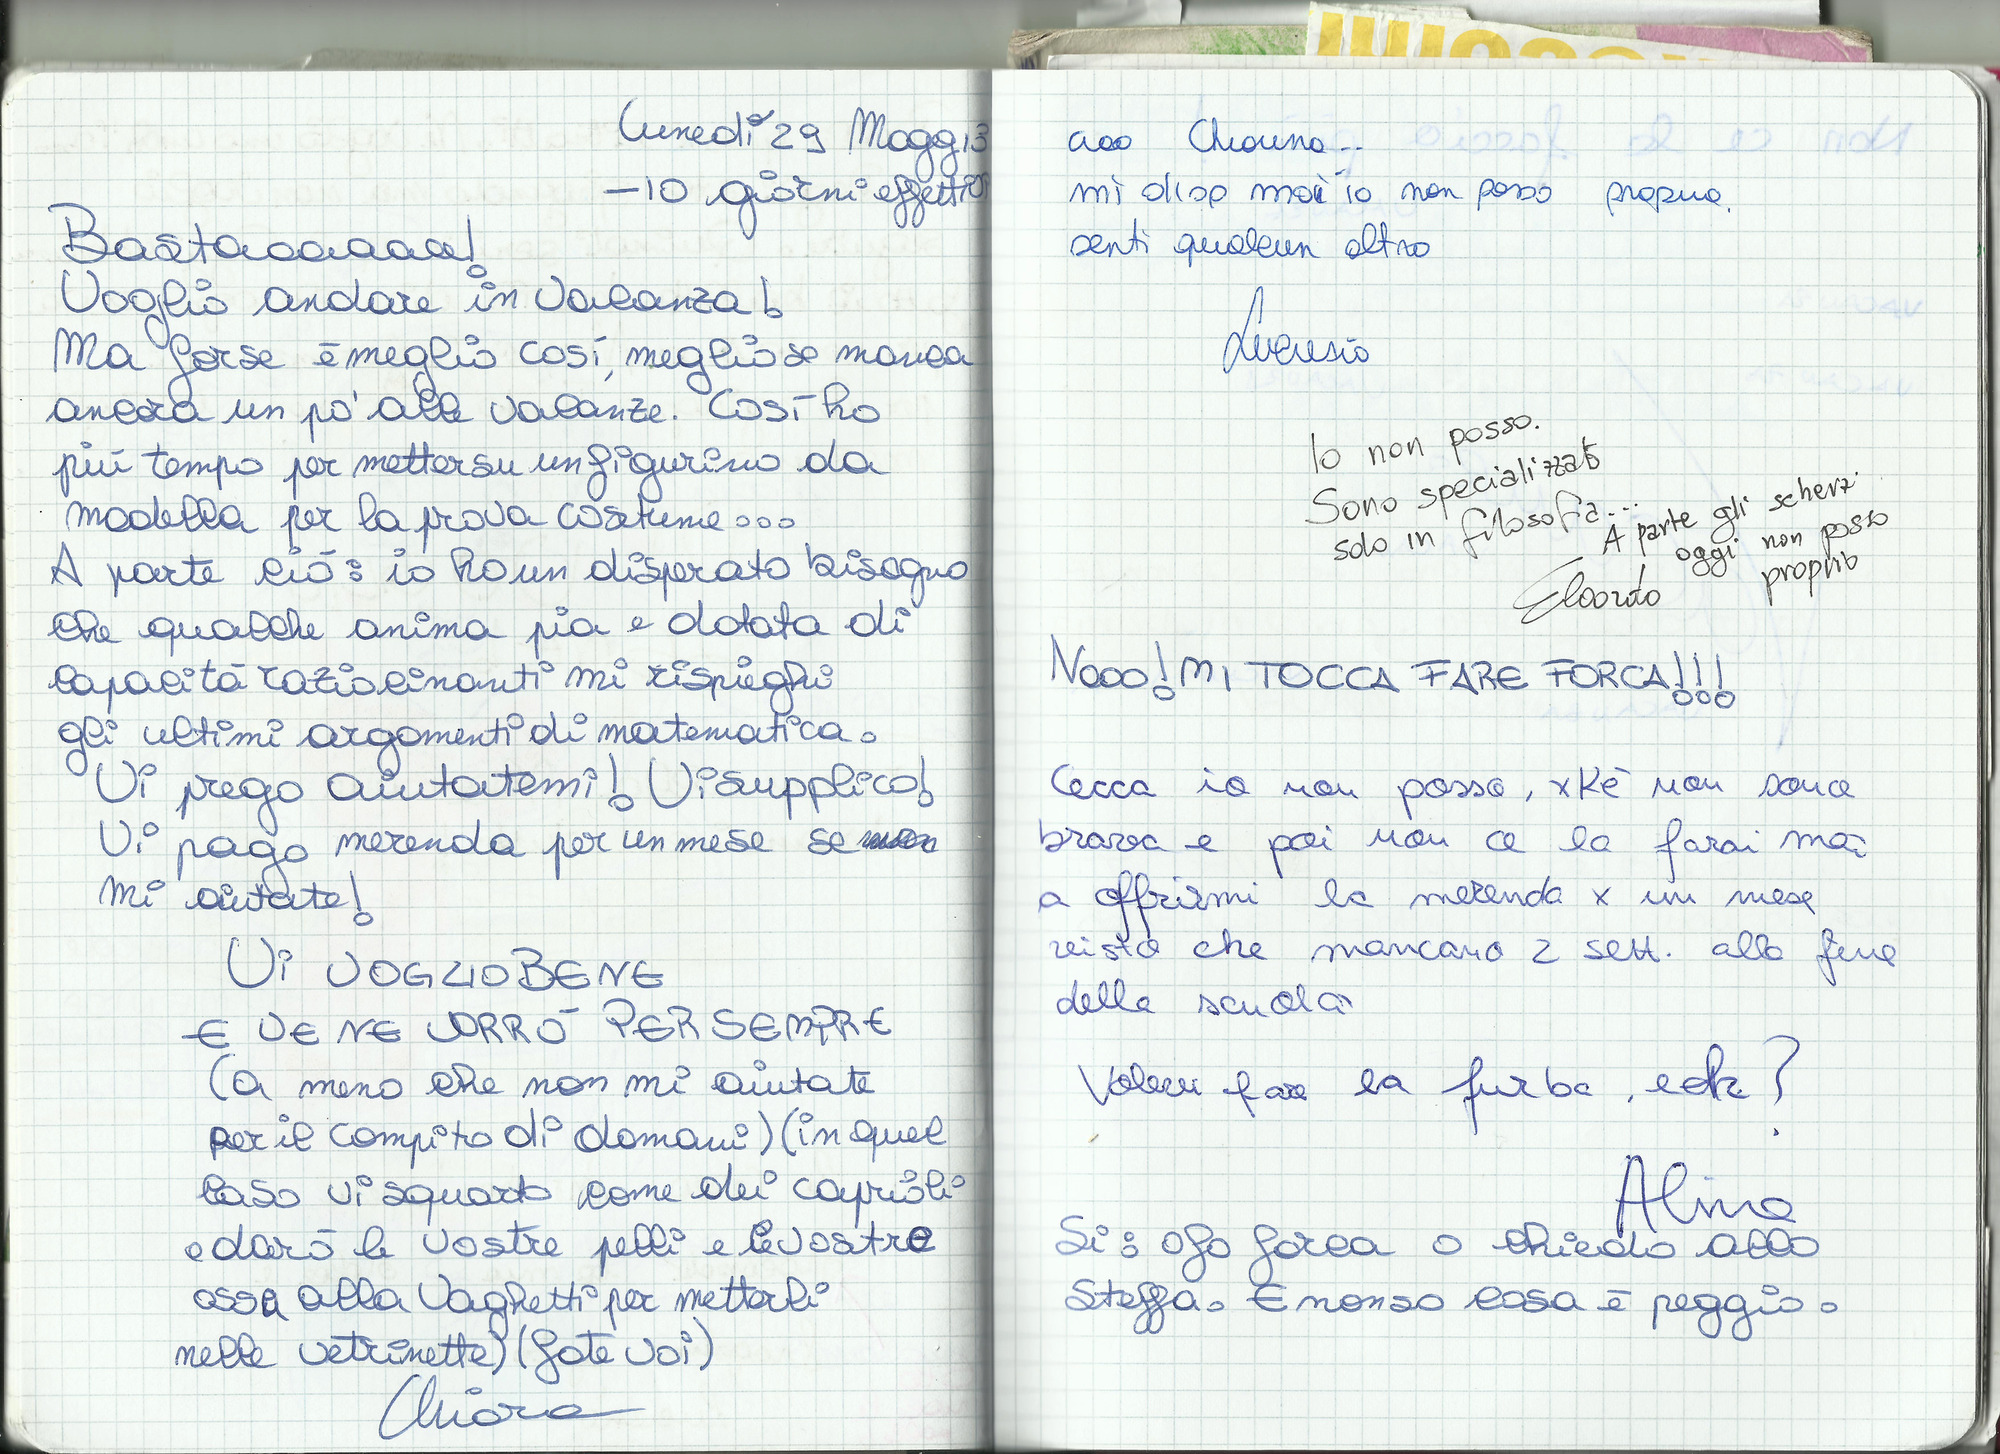 Lunedì 29 Maggio
-10 giorni effettivi
Bastaaaaaaa!
Voglio andare in vacanza!
Ma forse è meglio così, meglio se manca
ancora un po' alle vacanze. Così ho
più tempo per metter su un figurino da
modella per la prova costume...
A parte ciò: io ho un disperato bisogno
che qualche anima pia e dotata di
capacità raziocinanti mi rispieghi
gli ultimi argomenti di matematica.
Vi prego aiutatemi! Vi supplico!
Vi pago merenda per un mese se
mi aiutate!
Vi VOGLIO BENE
E VE NE VORRÒ PER SEMPRE
(a meno che non mi aiutate
per il compito di domani) (in quel
caso vi squarto come dei caprioli
e darò le vostre pelli e le vostre
ossa alla Vaghetti per metterli
nelle vetrinette) (fate voi)
Chiara
ciao Chiarina..
mi disp mai io non posso proprio.
senti qualcun altro
Lucrezia
Io non posso.
Sono specializzato
solo in filosofia...
A parte gli scherzi
oggi non posso
proprio
Edoardo
Nooo! MI TOCCA FARE FORCA!!!
Cecca io non posso, xkè non sono
brava e poi non ce la farai mai
a offrirmi la merenda x un mese
visto che mancano 2 sett. alla fine
della scuola
Volevi fare la furba, eh?
Alina
Sì: o fo forca o chiedo alla
Steffa. E non so cosa è peggio.